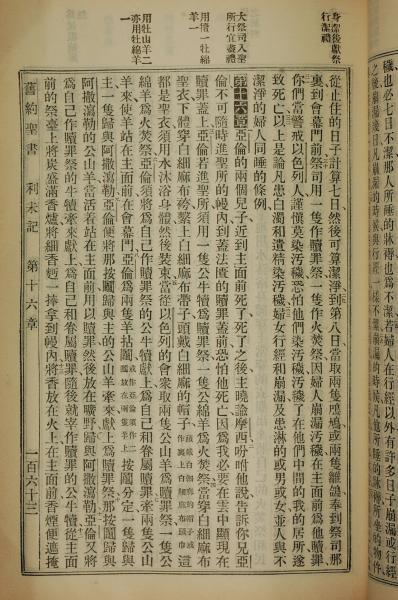 穢也必七日不潔那人所睡的牀褥也爲不潔若婦人在行經以外有許多日子崩漏或行經
身潔後獻祭
行潔禮
大祭司入聖
所行宜盡禮
用犢一牡綿
羊一
用牡山羊二
亦用牡綿羊
一
從止住的日子計算七日、然後可算潔淨到第八日、當取兩隻鳲鳩或兩隻雛鴿奉到祭司那
裏到會幕門前祭司用一隻作贖罪祭、一隻作火焚祭、因婦人崩漏汚穢在主面前爲他贖罪
你們當警戒以色列人謹愼莫染汚穢恐怕他們染汚穢汚穢了在他們中間的我的居所遂
致死亡以上是論凡患白濁和遺精染汚穢婦女行經和崩漏及患淋的或男或女並人與不
潔淨的婦人同睡的條例、
第十六章亞倫的兩個兒子近到主面前死了死了之後主曉諭摩西吩咐他說告訴你兄亞
倫不可隨時進聖所的幔內到蓋法匱的贖罪蓋前恐怕他死亡因爲我必要在雲中顯現在
贖罪蓋上亞倫若進聖所須用一隻公牛犢作贖罪祭一隻公綿羊作火焚祭當穿白細麻布
聖衣下體穿白細麻布袴繫上白細麻布帶子頭戴白細麻布的帽子這
都是聖衣須用水沐浴身體然後裝束當從以色列的會衆取兩隻公山羊爲贖罪祭一隻公
綿羊爲火焚祭亞倫須將爲自己作贖罪祭的公牛犢獻上爲自己和眷屬贖罪牽兩隻公山
羊來使羊站在主面前在會幕門亞倫爲兩隻羊拈鬮按鬮分定一隻歸與
主一隻歸與阿撒瀉勒亞倫便將那按鬮歸與主的公山羊牽來獻上爲贖罪祭那按鬮歸與
阿撒瀉勒的公山羊當活着站在主面前用以贖罪然後放在曠野歸與阿撒瀉勒亞倫又將
爲自己作贖罪祭的牛犢牽來獻上爲自己和眷屬贖罪隨後就宰作贖罪祭的公牛犢從主面
前的祭臺上將炭盛滿香爐將細香麪一捧拿到幔內將香放在火上在主面前香煙便遮掩
舊約聖書 利未記 第十六章 一百六十三